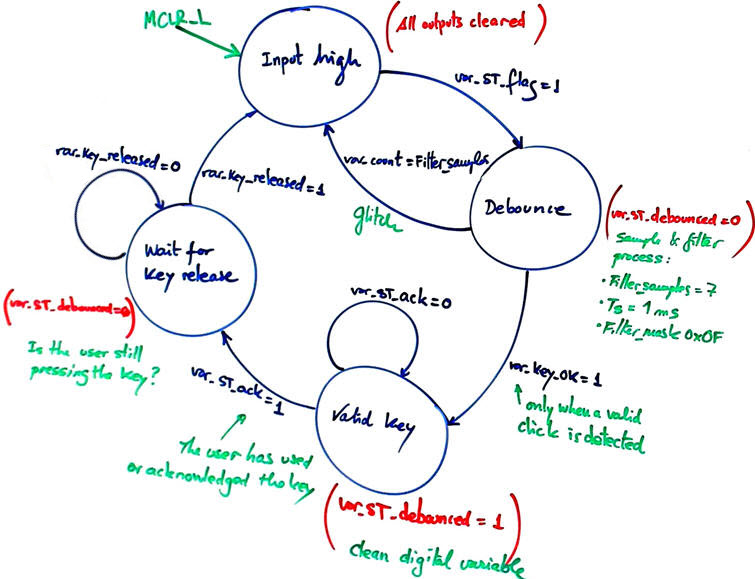 MCLR_L
(All outputs cleared)
Input high
var_ST_flag=1
var_key_released=0
var_key_released=1
var_count=Filter_samples
glitch
Debounce
(var_ST_debounced=0)
sample & filter
process:
• Filter_samples = 7
• Ts = 1 ms
• Filter_mask 0x0F
Wait for
key release
(var_ST_debounced=0)
Is the user still
pressing the key?
var_ST_ack=0
var_ST_ack=1
var_key_OK=1
only when a valid
click is detected
Valid key
The user has used
or acknowledged the key
(var_ST_debounced = 1)
clean digital variable